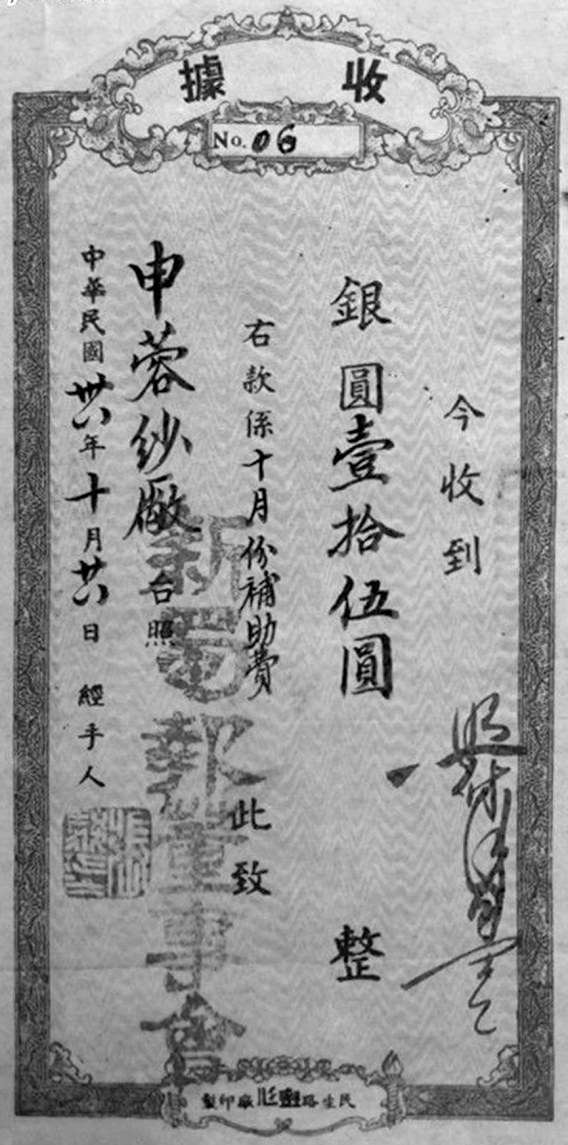 收據
No. 06
今收到
銀圓壹拾伍圓整
右款係十月份補助費此致
申蓉紗廠台照
新蜀報董事會
中華民國卅八年十月廿八日經手人
民生路 廠印製